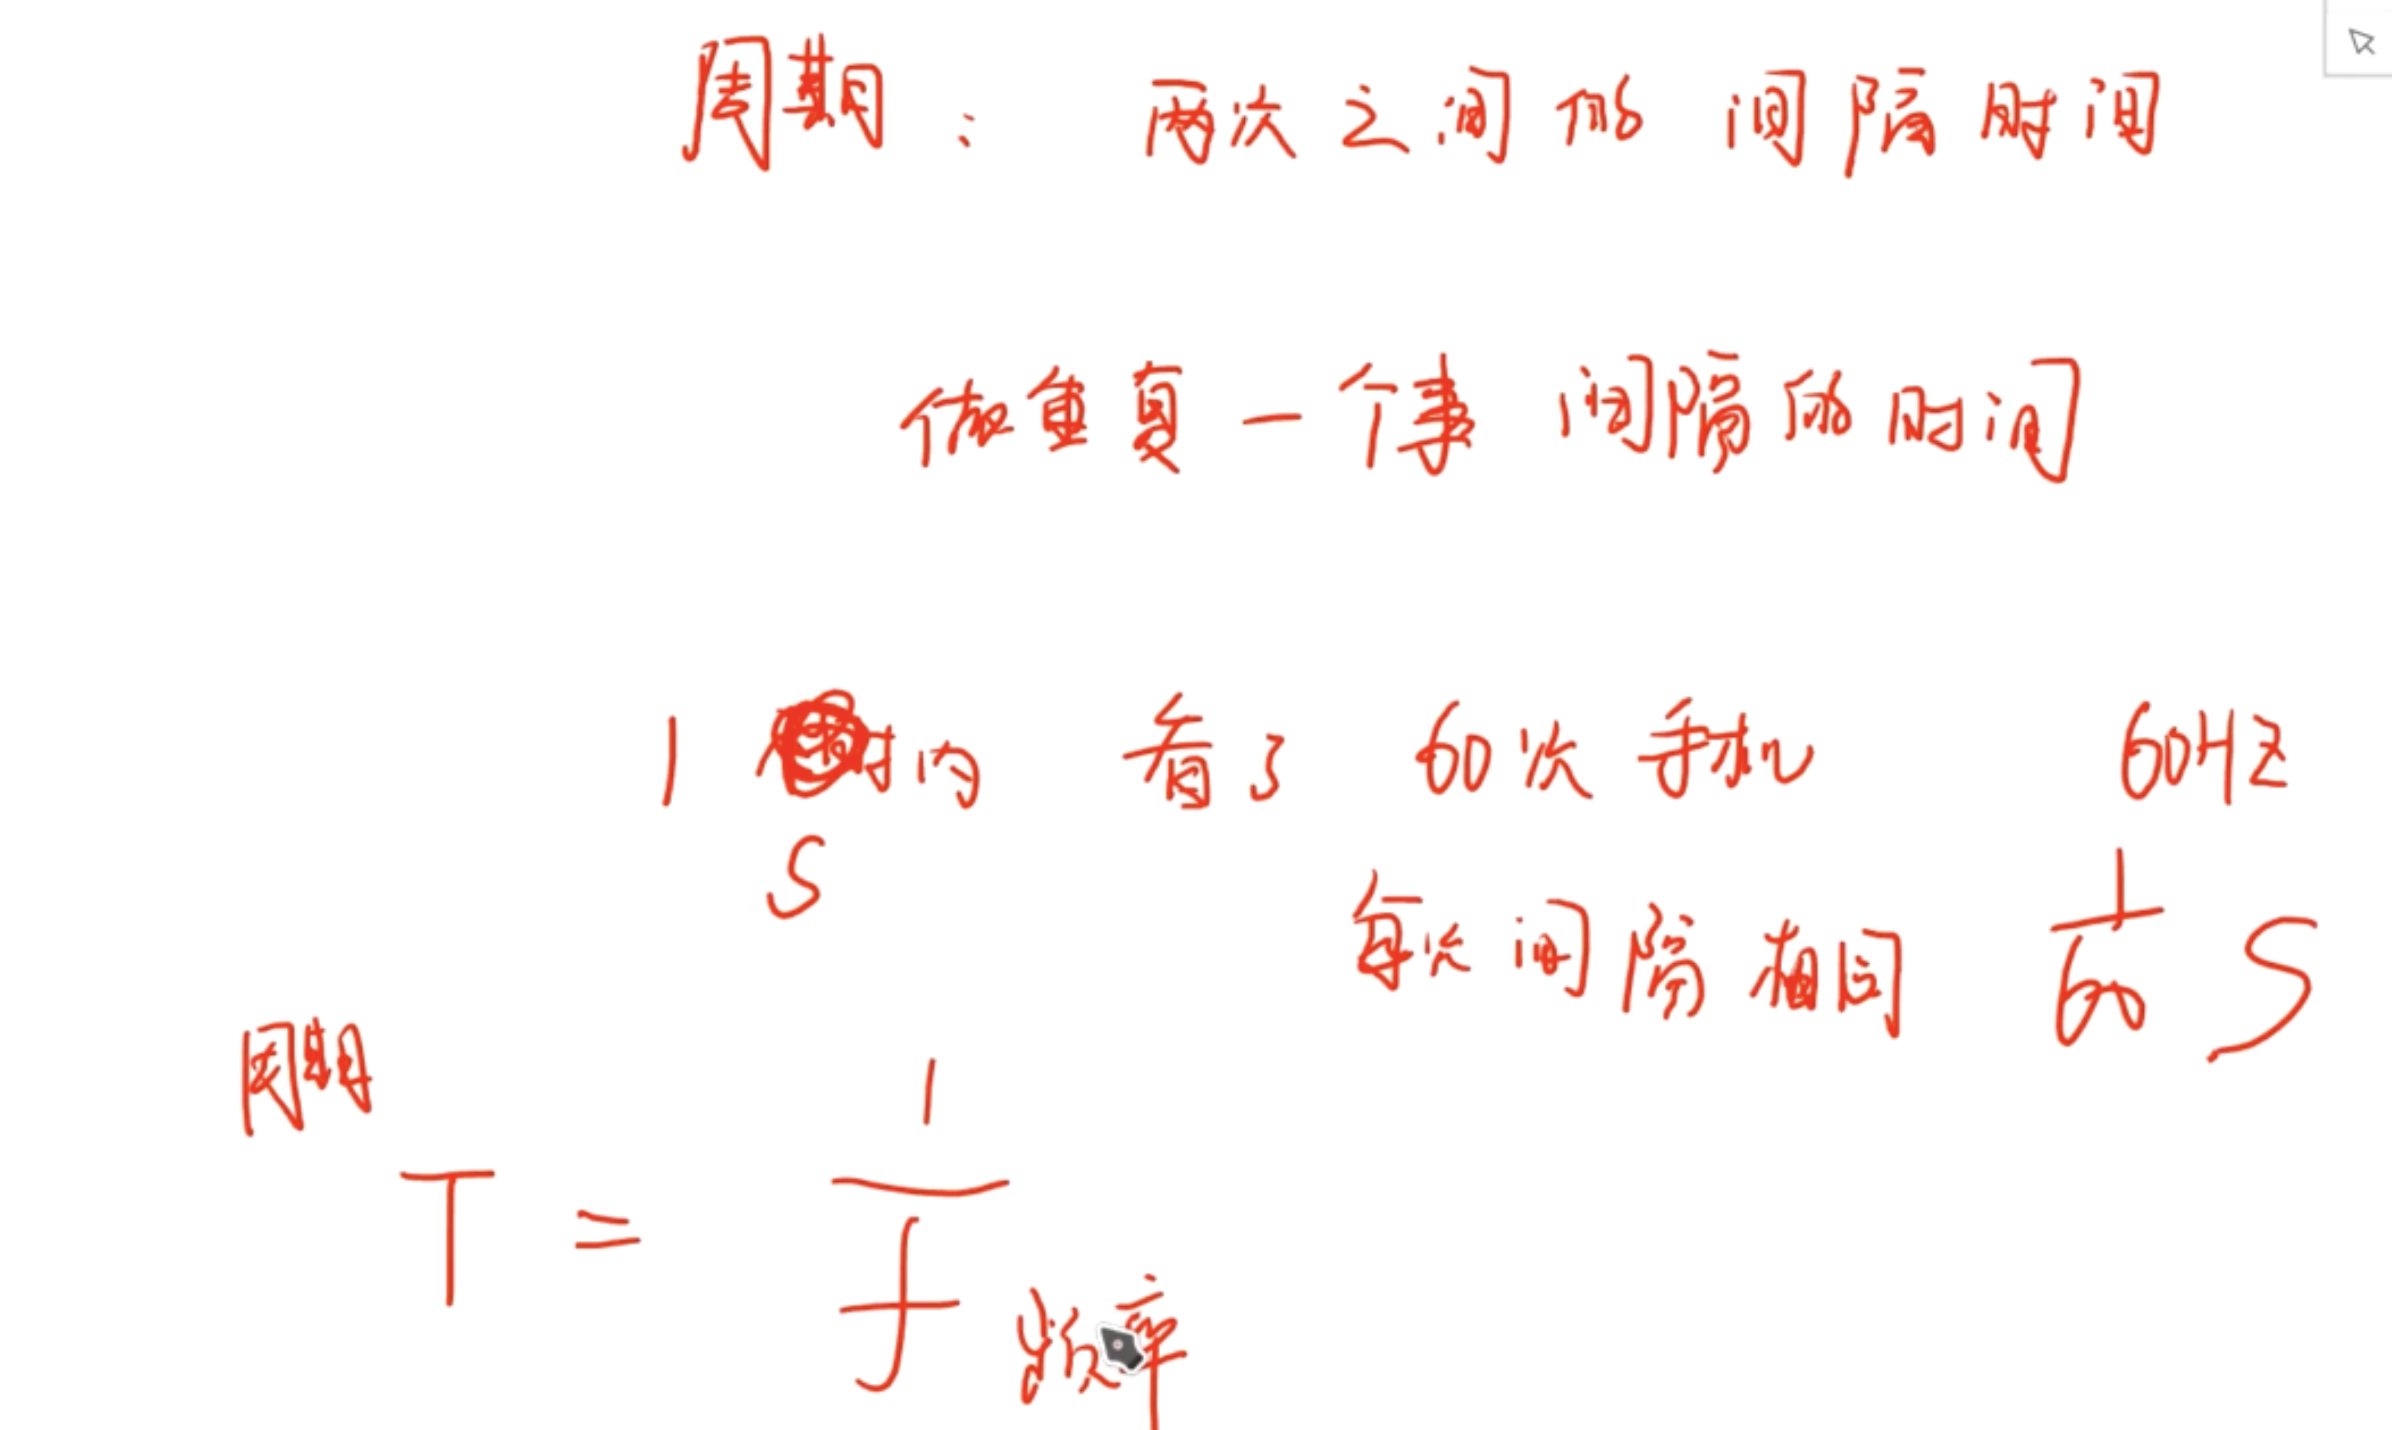 周期: 两次之间的 间隔时间
做重复一个事 间隔的时间
1 时内 看了 60次手机 60HZ
S
每次间隔相同 1/60 S
周期
T = 1/f 频率